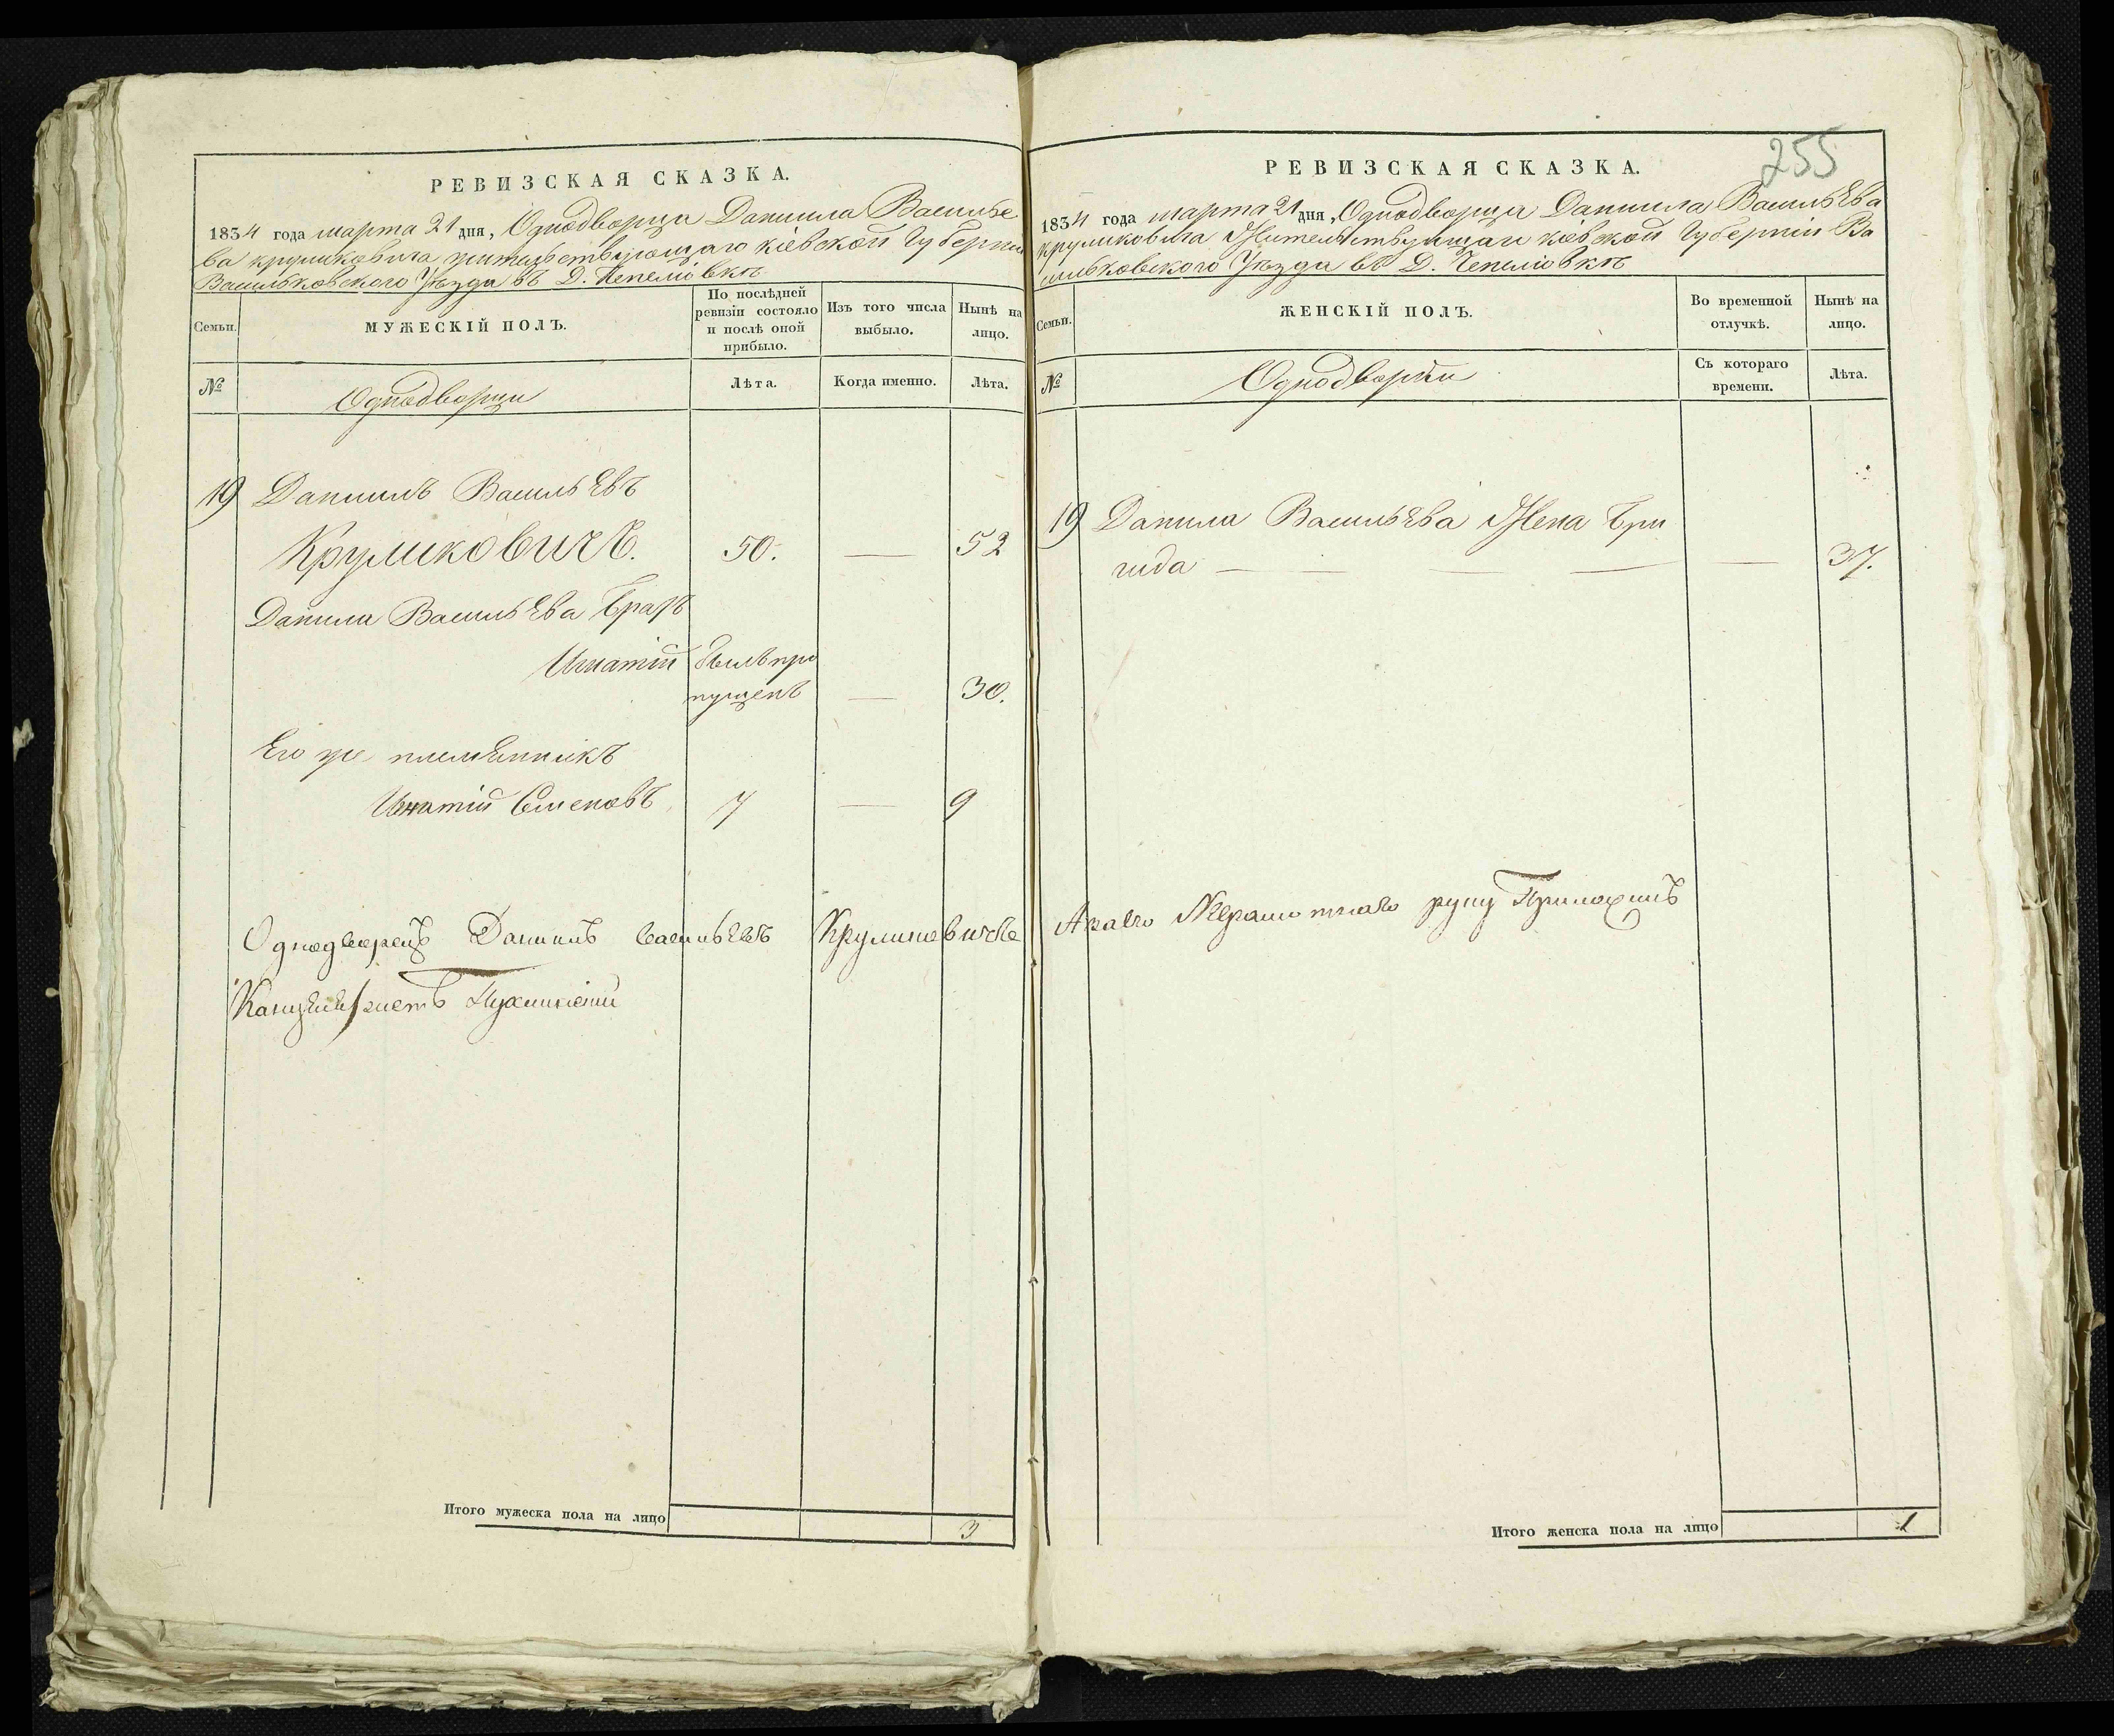 РЕВИЗСКАЯ СКАЗКА.
1834 года марта 21 дня, Однодворца Даниила Василье
ва круликовича жительствующаго кіевской Губерніи
Васильковского Уѣзда въ Д. Пепеліовкѣ
Семьи.
МУЖЕСКІЙ ПОЛЪ.
По послѣдней ревизіи состояло и послѣ оной прибыло.
Изъ того числа выбыло.
Нынѣ на лицо.
№
Однодворци
Лѣта.
Когда именно.
Лѣта.
19 Даниилъ Васильевъ
Круликовичъ. 50. — 52
Данила Васильева братъ
Игнатій былъ про
пущенъ — 30.
Его же племенникъ
Игнатій Семеновъ 7 — 9
Однодворецъ Данiилъ васильевъ Круликовичъ
Канцеляристъ
Итого мужеска пола на лицо 3
255
РЕВИЗСКАЯ СКАЗКА.
1834 года марта 21 дня, Однодворца Даниила Васильева
круликовича Жительствующаго кіевской Губерніи Ва
сильковского Уѣзда въ Д. Пепеліовкѣ
Семьи.
ЖЕНСКІЙ ПОЛЪ.
Во временной отлучкѣ.
Нынѣ на лицо.
№
Однодворки
Съ котораго времени.
Лѣта.
19 Данила Васильева Жена Бри
гида — — — — 37.
А за его Неграмотнаго руку Приложилъ
Итого женска пола на лицо 1